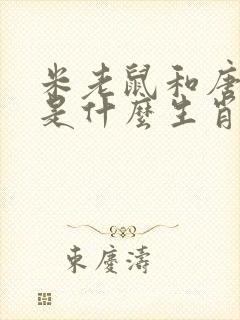 米老鼠和唐
是什麼生肖
東慶濤